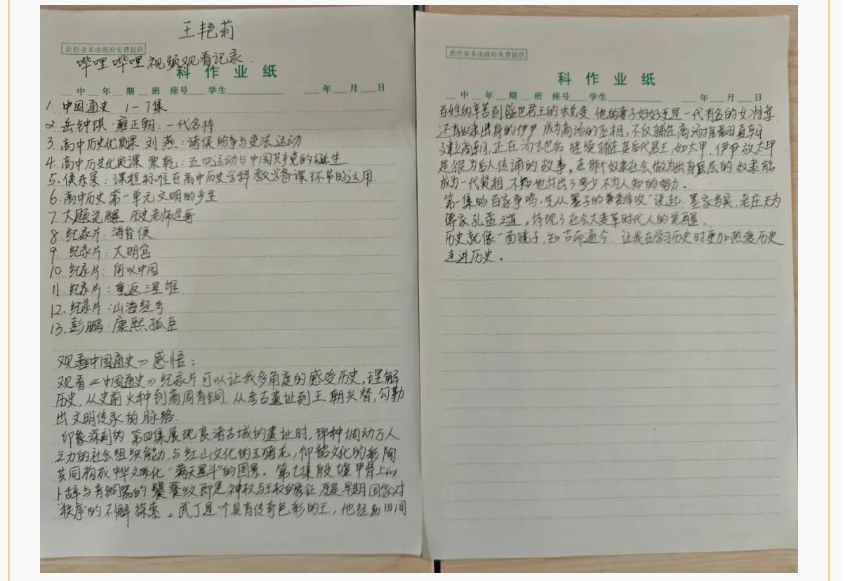 王艳莉
此作业本由政府免费提供
哔哩哔哩视频观看记录
科作业纸
中 年 期 班 座号 学生 年 月 日
1. 中国通史 1-7集
2. 岳钟琪 雍正朝:一代名将
3. 高中历史优质课 刘燕:诸侯纷争与变法运动
4. 高中历史优质课 :五四运动与中国共产党的诞生
5. 侯东晨:课程标准在高中历史学科教学备课环节的运用
6. 高中历史 第一单元 文明的产生
7. 大题 历史老师
8. 纪录片:海昏侯
9. 纪录片:大明宫
10. 纪录片:何以中国
11. 纪录片:重返三星堆
12. 纪录片:山海经奇
13. 彭鹏:康熙孤臣
观看《中国通史》感悟:
观看《中国通史》纪录片可以让我多角度的感受历史,理解
历史,从史前火种到商周青铜,从考古遗址到王朝兴替,勾勒
出文明传承的脉络。
印象深刻的 第四集展现良渚古城的遗址时,那种调动万人
之力的社会组织能力,与红山文化的玉猪龙,仰韶文化的彩陶
共同构成中华文化“满天星斗”的图景。第七集殷墟甲骨上的
卜辞与青铜器的饕餮纹即是神权与王权的象征 是早期国家对
“秩序”的不懈探索。武丁是个具有传奇色彩的王,他经历旧间
此作业本由政府免费提供
科作业纸
中 年 期 班 座号 学生 年 月 日
百姓的辛苦到盛世君王的蜕变,他的妻子妇好更是一代有名的女将军
还有奴隶出身的伊尹 成为商汤的丞相,不仅辅佐商汤推翻夏朝
建商朝,在汤去后 继续辅佐其后代君王,如太甲。伊尹放太甲
是很为后人传诵的故事,在那个奴隶社会做为出身底层的奴隶能
成为一代贤相,不知他付出了多少不为人知的努力。
第集的百家争鸣,先从墨子的“兼爱非攻”说起,墨家务实,老庄无为
儒家孔孟之道,体现了社会大变革时代人的觉醒。
历史就像一面镜子,知古而通今,让我在学习历史时更加热爱历史
走进历史。